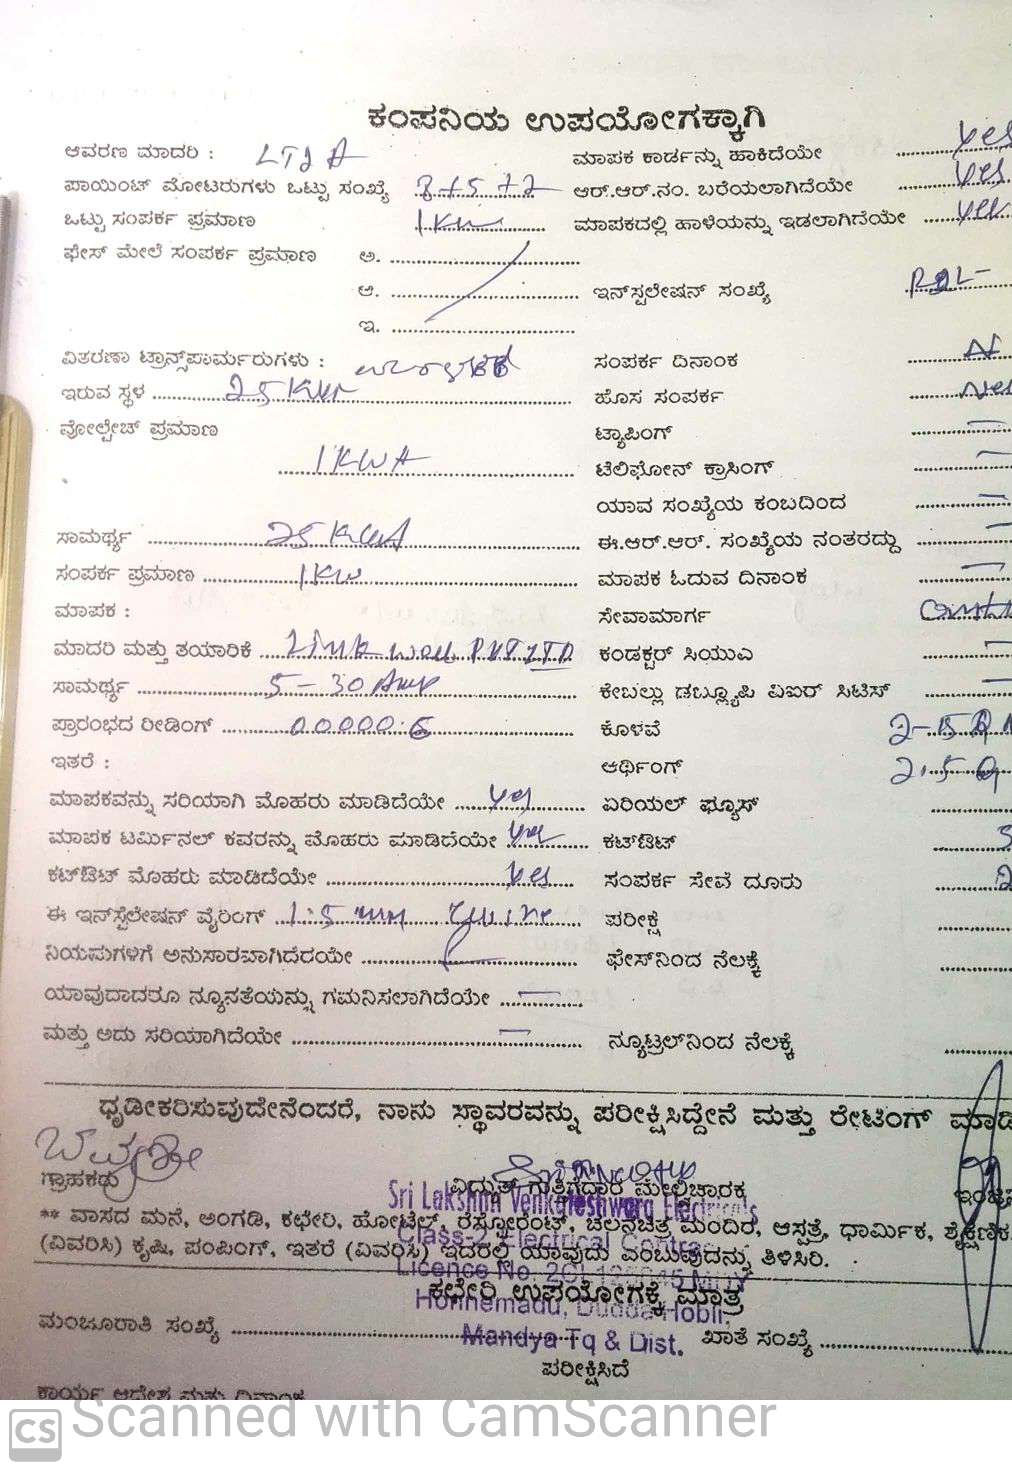 ಕಂಪನಿಯ ಉಪಯೋಗಕ್ಕಾಗಿ
ಆವರಣ ಮಾದರಿ : LT2A ಮಾಪಕ ಕಾರ್ಡನ್ನು ಹಾಕಿದೆಯೇ yes
ಪಾಯಿಂಟ್ ಮೋಟರುಗಳು ಒಟ್ಟು ಸಂಖ್ಯೆ 3+5+2 ಆರ್.ಆರ್.ನಂ. ಬರೆಯಲಾಗಿದೆಯೇ yes
ಒಟ್ಟು ಸಂಪರ್ಕ ಪ್ರಮಾಣ 1KW ಮಾಪಕದಲ್ಲಿ ಹಾಳೆಯನ್ನು ಇಡಲಾಗಿದೆಯೇ yes
ಫೇಸ್ ಮೇಲೆ ಸಂಪರ್ಕ ಪ್ರಮಾಣ ಅ.
ಆ. ಇನ್‌ಸ್ಟಲೇಷನ್ ಸಂಖ್ಯೆ
ಇ.
ವಿತರಣಾ ಟ್ರಾನ್ಸ್‌ಪಾರ್ಮರುಗಳು : ಸಂಪರ್ಕ ದಿನಾಂಕ
ಇರುವ ಸ್ಥಳ ಹೊಸ ಸಂಪರ್ಕ
ವೋಲ್ಟೇಚ್ ಪ್ರಮಾಣ ಟ್ಯಾಪಿಂಗ್
1KWA ಟೆಲಿಫೋನ್ ಕ್ರಾಸಿಂಗ್
ಯಾವ ಸಂಖ್ಯೆಯ ಕಂಬದಿಂದ
ಸಾಮರ್ಥ್ಯ ಈ.ಆರ್.ಆರ್. ಸಂಖ್ಯೆಯ ನಂತರದ್ದು
ಸಂಪರ್ಕ ಪ್ರಮಾಣ 1KW ಮಾಪಕ ಓದುವ ದಿನಾಂಕ
ಮಾಪಕ : ಸೇವಾಮಾರ್ಗ
ಮಾದರಿ ಮತ್ತು ತಯಾರಿಕೆ Link well PVT LTD ಕಂಡಕ್ಟರ್ ಸಿಯುಎ
ಸಾಮರ್ಥ್ಯ 5-30 Amp ಕೇಬಲ್ಲು ಡಬ್ಲ್ಯೂಪಿ ಪಿಐರ್ ಸಿಟಿಸ್
ಪ್ರಾರಂಭದ ರೀಡಿಂಗ್ 00000.6 ಕೊಳವೆ
ಇತರೆ : ಆರ್ಥಿಂಗ್
ಮಾಪಕವನ್ನು ಸರಿಯಾಗಿ ಮೊಹರು ಮಾಡಿದೆಯೇ yes ಏರಿಯಲ್ ಫ್ಯೂಸ್
ಮಾಪಕ ಟರ್ಮಿನಲ್ ಕವರನ್ನು ಮೊಹರು ಮಾಡಿದೆಯೇ yes ಕಟ್‌ಔಟ್
ಕಟ್‌ಔಟ್ ಮೊಹರು ಮಾಡಿದೆಯೇ yes ಸಂಪರ್ಕ ಸೇವೆ ದೂರು
ಈ ಇನ್‌ಸ್ಟೆಲೇಷನ್ ವೈರಿಂಗ್ 1.5 mm ಪರೀಕ್ಷೆ
ನಿಯಮಗಳಿಗೆ ಅನುಸಾರವಾಗಿದೆರಯೇ ಫೇಸ್‌ನಿಂದ ನೆಲಕ್ಕೆ
ಯಾವುದಾದರೂ ನ್ಯೂನತೆಯನ್ನು ಗಮನಿಸಲಾಗಿದೆಯೇ
ಮತ್ತು ಅದು ಸರಿಯಾಗಿದೆಯೇ ನ್ಯೂಟ್ರಲ್‌ನಿಂದ ನೆಲಕ್ಕೆ
ಧೃಡೀಕರಿಸುವುದೇನೆಂದರೆ, ನಾನು ಸ್ಥಾವರವನ್ನು ಪರೀಕ್ಷಿಸಿದ್ದೇನೆ ಮತ್ತು ರೇಟಿಂಗ್
ಗ್ರಾಹಕರು ವಿದ್ಯುತ್ ಗುತ್ತಿಗೆದಾರ ಮೇಲ್ವಿಚಾರಕ
Sri Lakshmi Venkateshwara Electricals
** ವಾಸದ ಮನೆ, ಅಂಗಡಿ, ಕಛೇರಿ, ಹೋಟೆಲ್, ರೆಸ್ಟೋರೆಂಟ್, ಚಲನಚಿತ್ರ ಮಂದಿರ, ಆಸ್ಪತ್ರೆ, ಧಾರ್ಮಿಕ, ಶೈಕ್ಷಣಿಕ
(ವಿವರಿಸಿ) ಕೃಷಿ, ಪಂಪಿಂಗ್, ಇತರೆ (ವಿವರಿಸಿ) ಇದರಲ್ಲಿ ಯಾವುದು ಎಂಬುವುದನ್ನು ತಿಳಿಸಿರಿ.
Class-2 Electrical
Licence No.
ಕಛೇರಿ ಉಪಯೋಗಕ್ಕೆ ಮಾತ್ರ
Honnemadu, Dudda Hobli,
ಮಂಜೂರಾತಿ ಸಂಖ್ಯೆ ಖಾತೆ ಸಂಖ್ಯೆ
Mandya Tq & Dist.
ಪರೀಕ್ಷಿಸಿದೆ
ಕಾರ್ಯ ಆದೇಶ ಮತ್ತು ದಿನಾಂಕ
CS Scanned with CamScanner